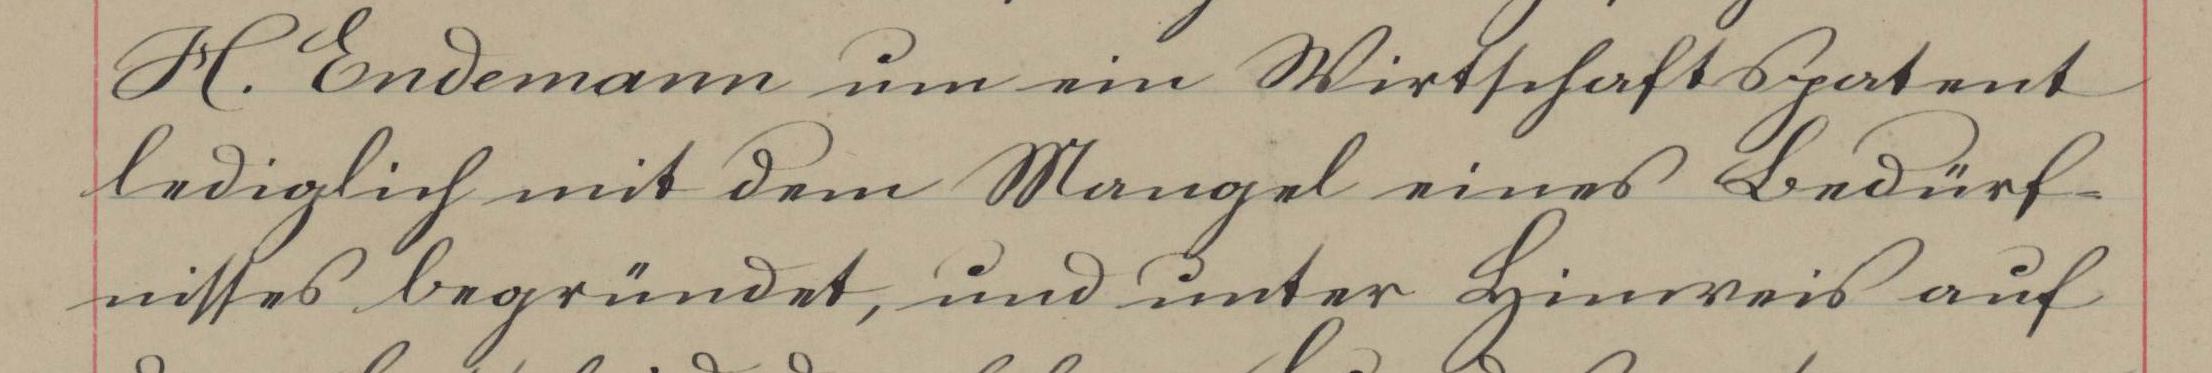 H. Endemann um ein Wirtschaftspatent
lediglich mit dem Mangel eines Bedürf-
nisses begründet, und unter Hinweis auf